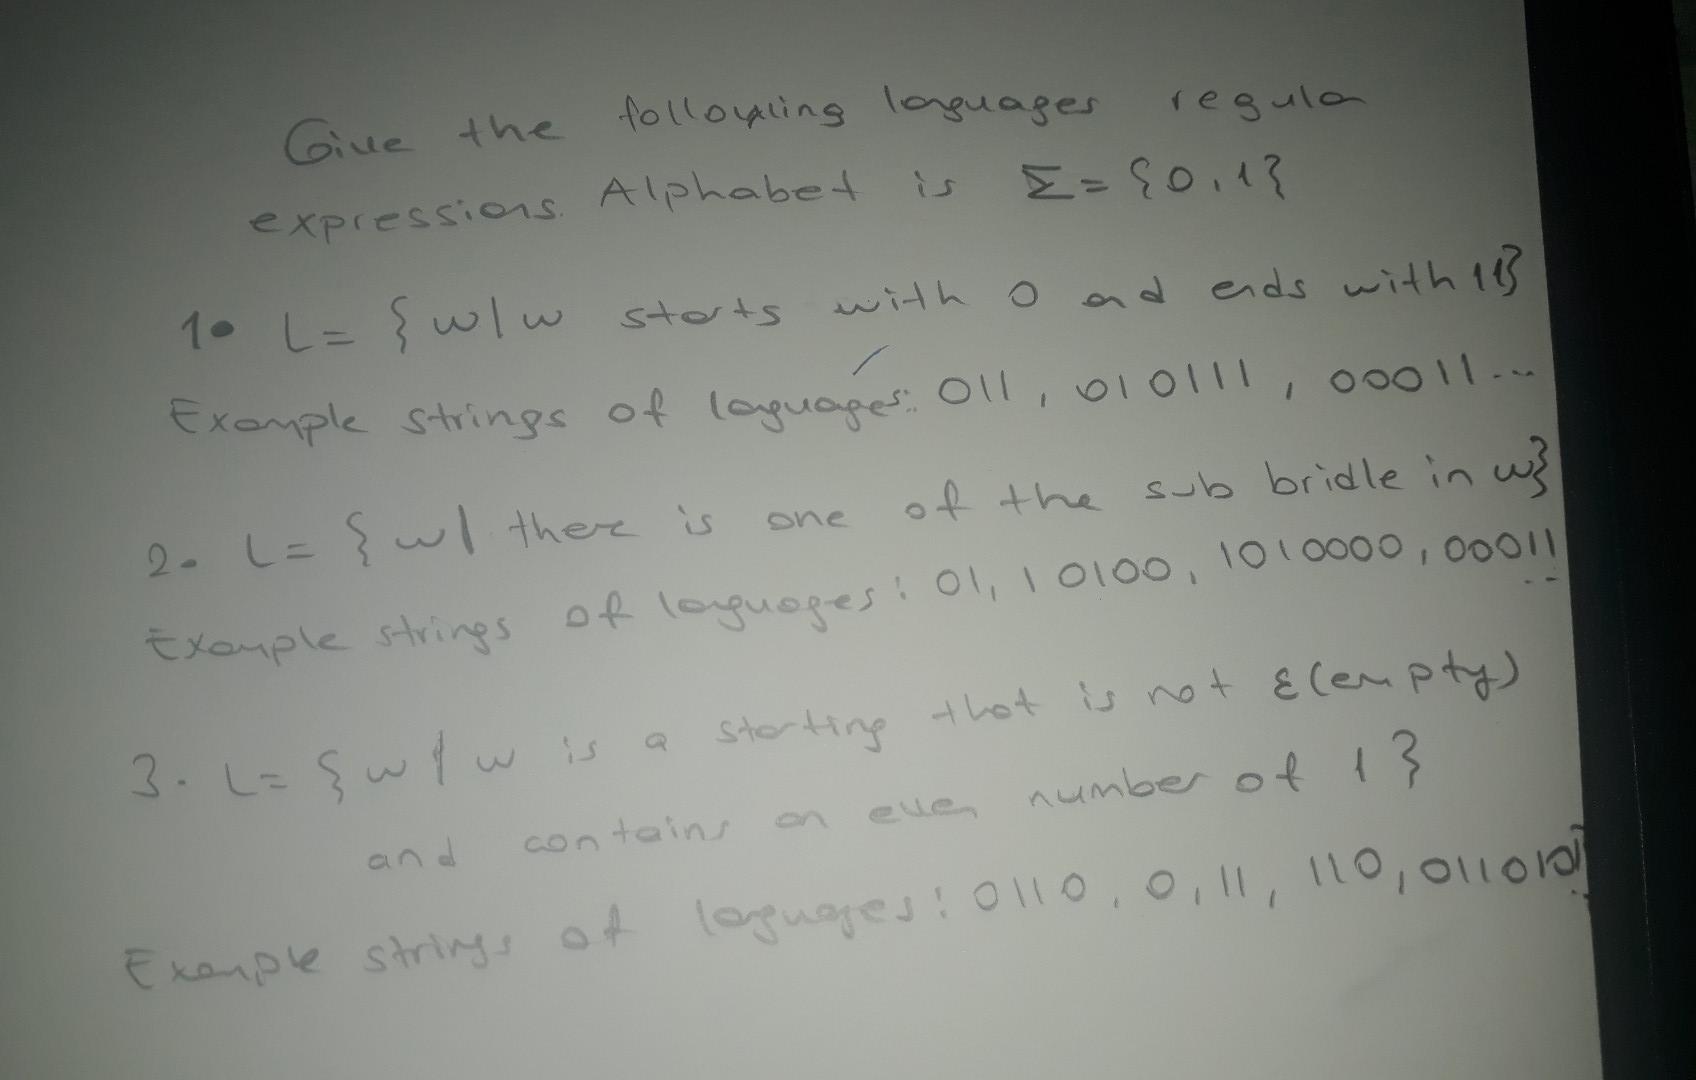 Give the following languages regular
expressions. Alphabet is Σ = {0,1}
1. L = {w|w starts with 0 and ends with 11}
Example strings of languages: 011, 010111, 00011...
2. L = {w| there is one of the sub bridle in w}
Example strings of languages: 01, 10100, 1010000, 00011..
3. L = {w|w is a starting that is not ε(empty)
and contains an even number of 1}
Example strings of languages: 0110, 0, 11, 110, 0110101..